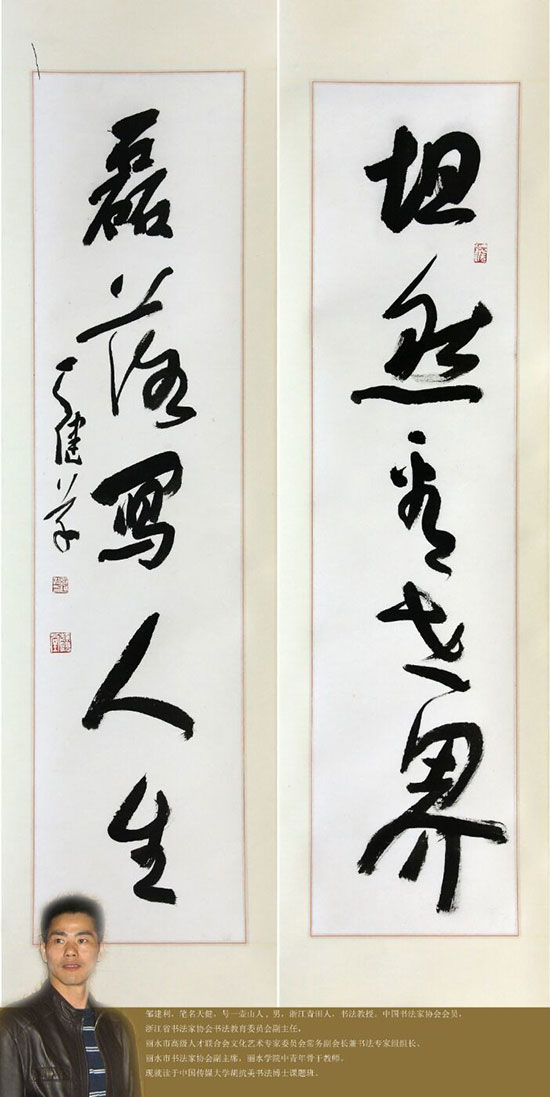 坦然看世界
磊落写人生
天健草
邹建利，笔名天健，号一壶山人，男，浙江青田人，书法教授。中国书法家协会会员，
浙江省书法家协会书法教育委员会副主任，
丽水市高级人才联合会文化艺术专家委员会常务副会长兼书法专家组组长。
丽水市书法家协会副主席，丽水学院中青年骨干教师。
现就读于中国传媒大学胡抗美书法博士课题班。